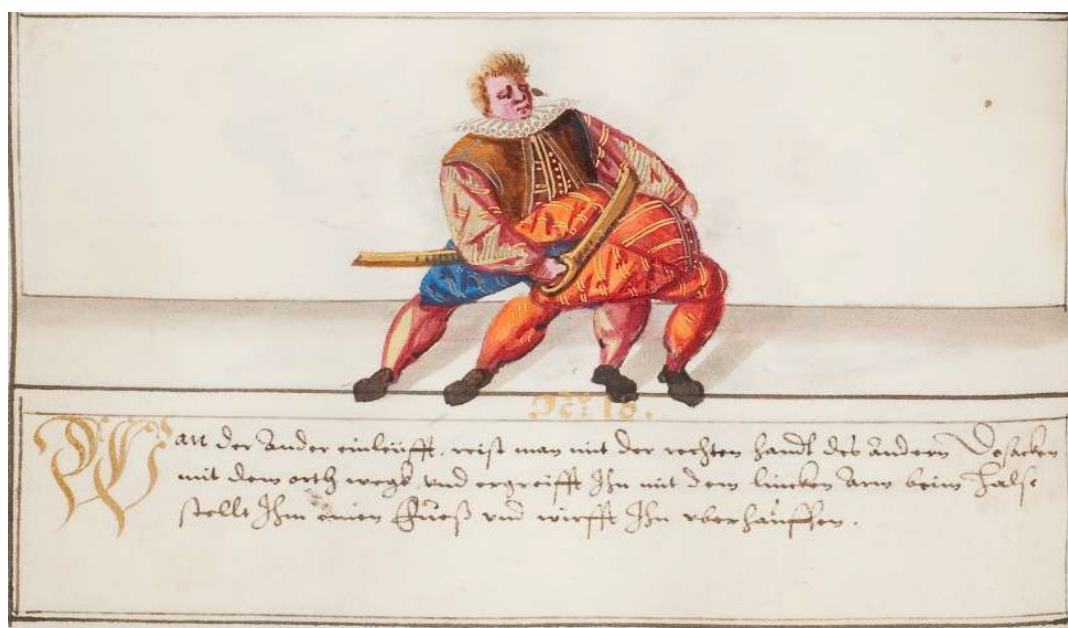 No: 18.
Wan der Ander einleüfft, reist man mit der rechten handt des andern Dosacken
mit dem orth wegk, vnd ergreifft Ihn mit dem lincken Arm beim Halse
stellt Ihm einen Fueß vnd wirfft Ihn vberhauffen.